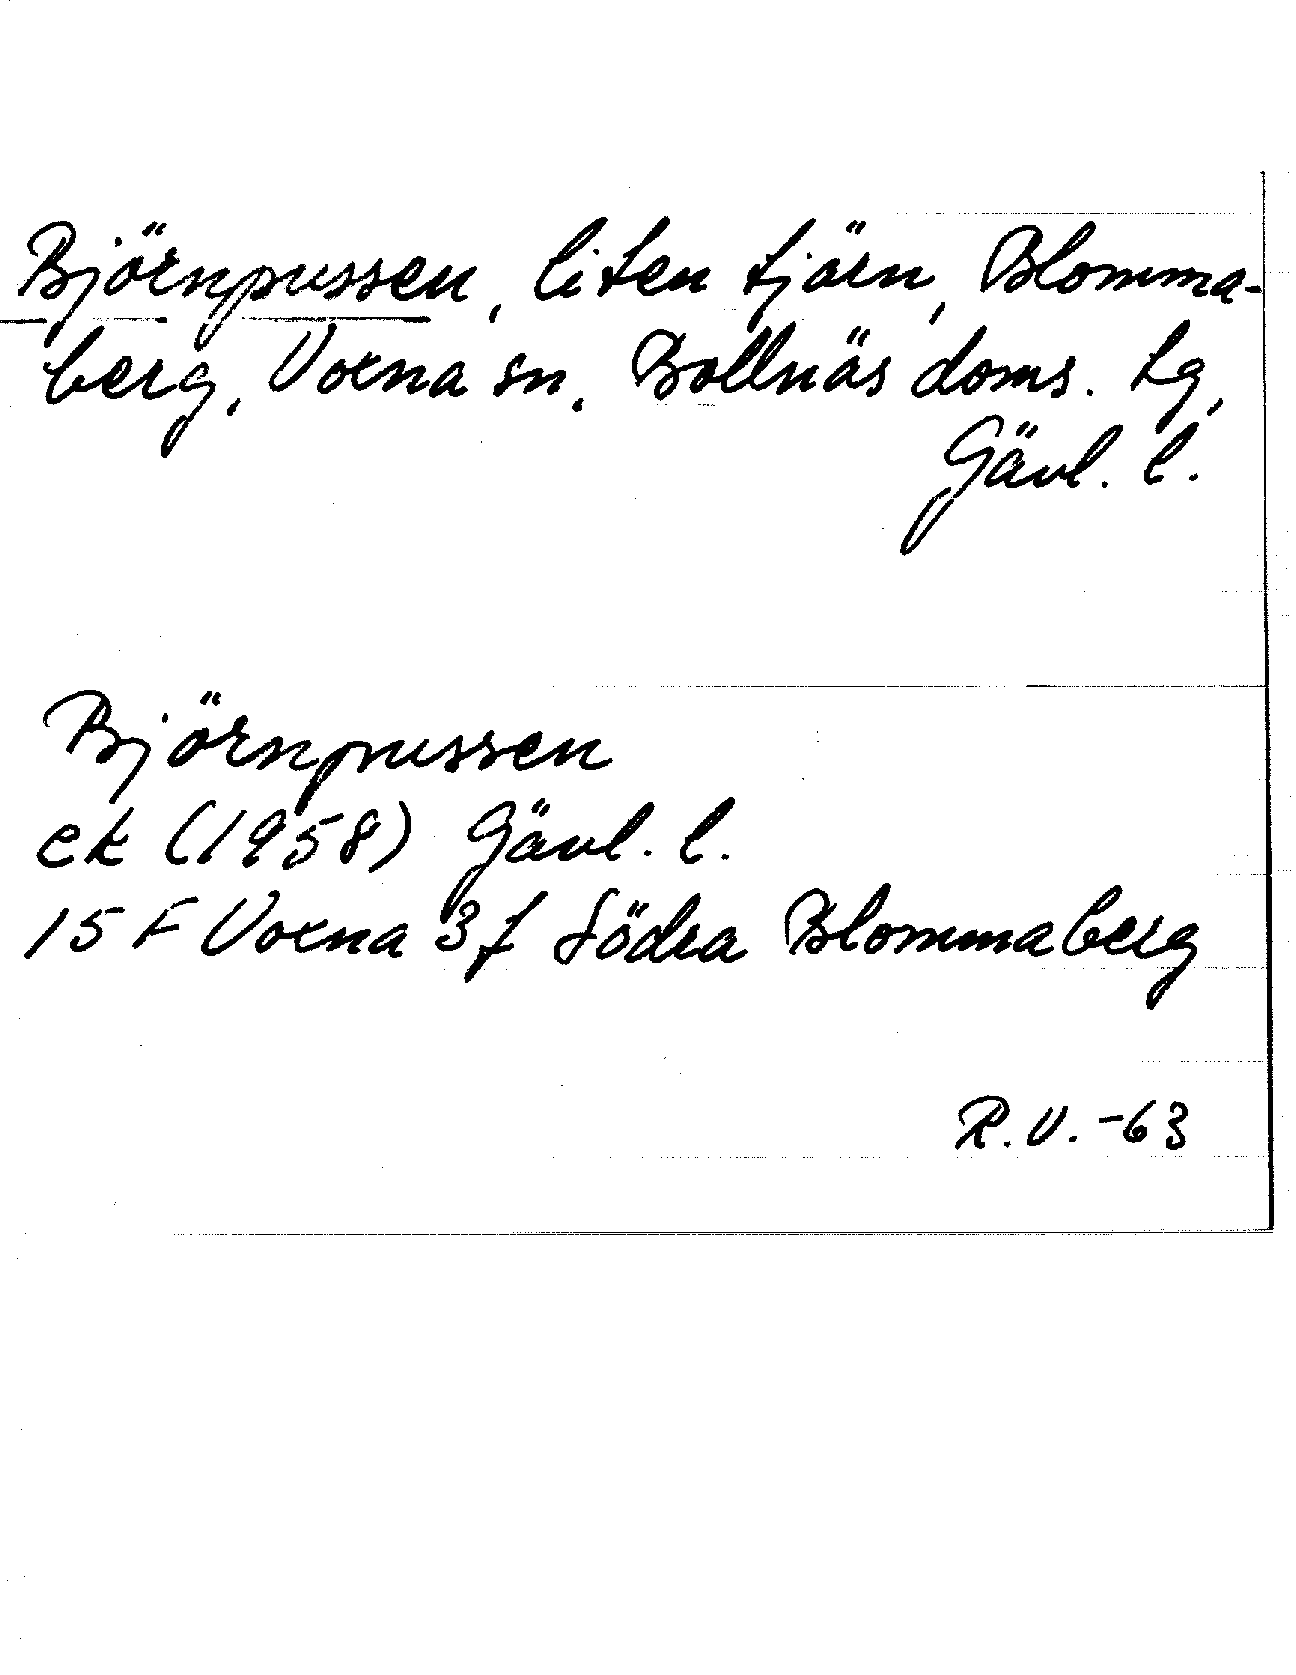 Björnpussen, liten tjärn, Blomma-
berg, Voxna sn. Bollnäs doms. lg,
Gävl. l.
Björnpussen
ek (1958) Gävl. l.
15 F Voxna 3f Södra Blommaberg
R.V. -63